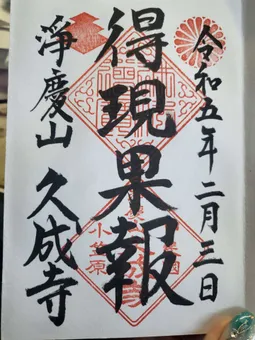 令和五年二月三日
得現果報
淨慶山 久成寺
小笠原